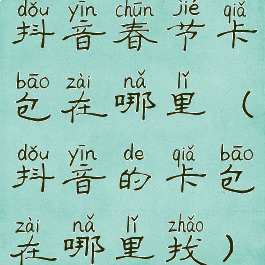 dǒu yīn chūn jié qiǎ
抖音春节卡
bāo zài nǎ lǐ
包在哪里（
dǒu yīn de qiǎ bāo
抖音的卡包
zài nǎ lǐ zhǎo
在哪里找）